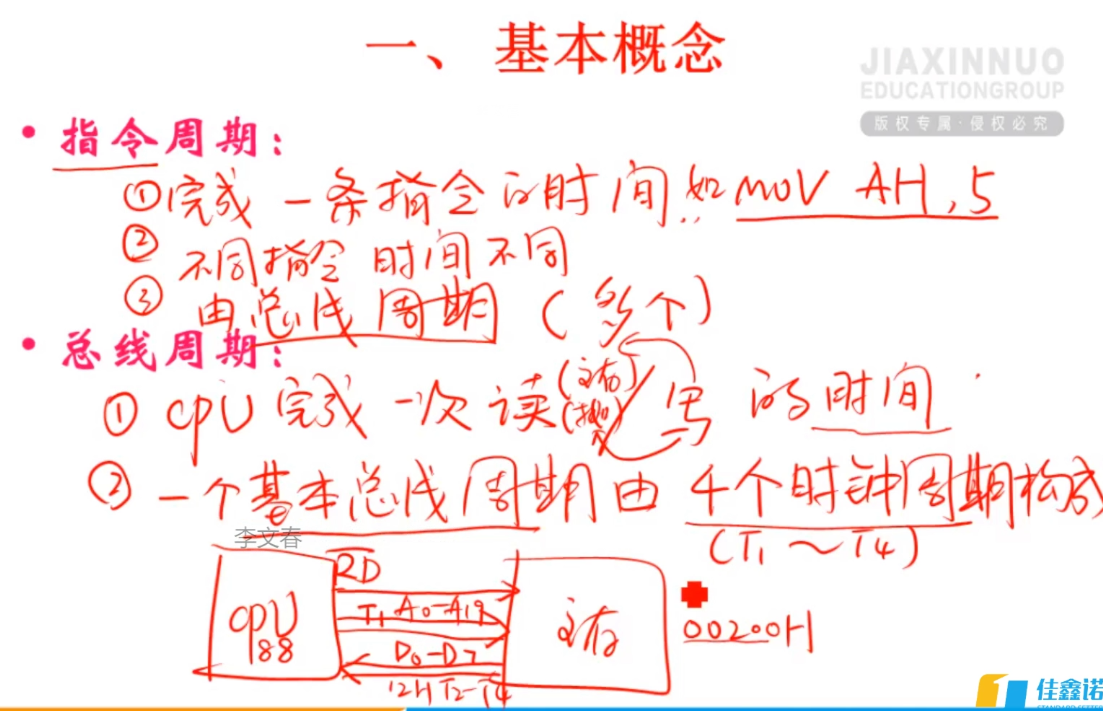 一、 基本概念
JIAXINNUO
EDUCATIONGROUP
版权专属·侵权必究
• 指令周期：
①完成一条指令的时间 如 MOV AH,5
② 不同指令 时间不同
③ 由总线周期（多个）
• 总线周期：
① CPU完成一次读(主存)/写的时间
② 一个基本总线周期由4个时钟周期构成
(T1～T4)
李文春
RD
CPU
88
T1 A0-A19
D0-D7
12H T2-T4
主存
00200H
佳鑫诺